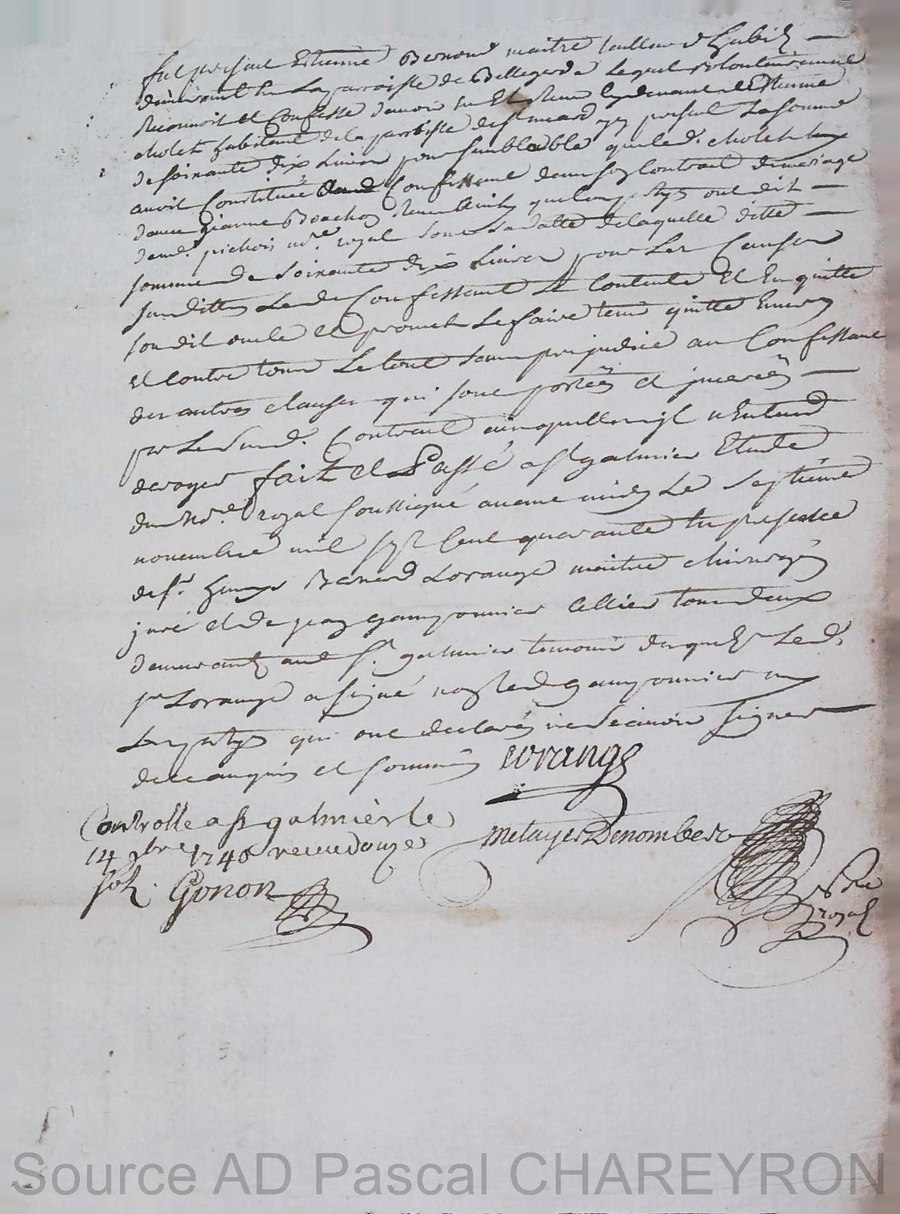 fut present Etienne Benoud maitre tailleur d'habits
demeurant en La parroisse de Bellegarde Lequel volontairement
Reconnoit et Confesse d'avoir eu Et Receu cy devant d'Estienne
cholet habitant de la parroisse de St medard icy present La somme
de soixante dix Livres pour semblable que le d. cholet luy
avoit Constitué Confessant dans son Contrat de mariage
avec jeanne que les partyes ont dit
pichois no.re royal sous sa datte de laquelle ditte
somme de soixante dix Livres pour Les Causes
susdittes Le d. Confessant se Contente Et En quitte
son dit oncle et promet Le faire tenir quitte Envers
et Contre tous Le tout sans prejudice au Confessant
des autres clauses qui sont portées et inserées
par Le susd. Contrat ausquelles il n'Entend
deroger fait et Passé a St galmier Etude
du No.re royal soussigné avant midy Le septième
novembre mil sept Cent quarante En presence
de sr. Benoid Lorange maitre chirurgien
juré et de jean gauyonnier cellier tous deux
demeurants aud St. galmier temoins duquels Le d.
sr Lorange a signé non led gauyonnier ny
Les partyes qui ont declaré ne sçavoir signer
de ce enquis et sommés Lorange
Controllé a St galmier le
14 9bre 1740 receu douze
sols. Gonon
metayer Denombert
no.re
royal
Source AD Pascal CHAREYRON